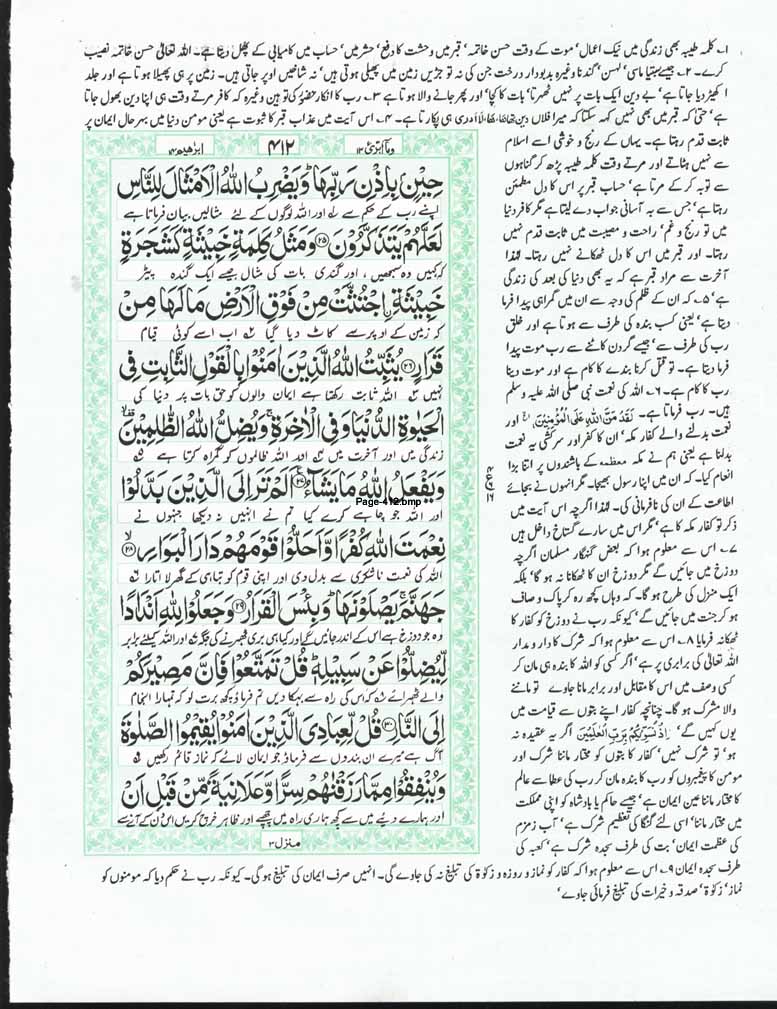 ۱۔ کلمہ طیبہ بھی زندگی میں نیک اعمال' موت کے وقت حسن خاتمہ' قبر میں وحشت کا دفع' حشر میں' حساب میں کامیابی کے پھل دیتا ہے۔ اللہ تعالیٰ حسن خاتمہ نصیب
کرے۔ ۲۔ جیسے لہسن' گندنا وغیرہ بدبودار درخت جن کی نہ تو جڑیں زمین میں پھیلی ہوتی ہیں' نہ شاخیں اوپر جاتی ہیں۔ زمین پر ہی پھیلا ہوتا ہے اور جلد
اکھیڑ دیا جاتا ہے' بے دین ایک بات پر نہیں ٹھہرتا' بات کا کچا' اور پھر جانے والا ہوتا ہے ۳۔ رب کا انکار حضور کی توہین وغیرہ کہ کافر مرتے وقت ہی اپنا دین بھول جاتا
ہے' حتیٰ کہ قبر میں بھی نہیں کہہ سکتا کہ میرا فلاں دین تھا ہی پکارتا ہے۔ ۴۔ اس آیت میں عذاب قبر کا ثبوت ہے یعنی مومن دنیا میں بہرحال ایمان پر
ابرٰھیم ۱۴
۴۱۲
ومآ ابرئ ۱۳
حِيْنٍۭ بِاِذْنِ رَبِّهَا ؕ وَيَضْرِبُ اللّٰهُ الْاَمْثَالَ لِلنَّاسِ
اپنے رب کے حکم سے ۱ اور اللہ لوگوں کے لئے مثالیں بیان فرماتا ہے
لَعَلَّهُمْ يَتَذَكَّرُوْنَ ﴿۲۵﴾ وَمَثَلُ كَلِمَةٍ خَبِيْثَةٍ كَشَجَرَةٍ
کہ کہیں وہ سمجھیں ، اور گندی بات کی مثال جیسے ایک گندہ پیڑ
خَبِيْثَةِ ِۨ اجْتُثَّتْ مِنْ فَوْقِ الْاَرْضِ مَا لَهَا مِنْ
کہ زمین کے اوپر سے کاٹ دیا گیا ۲ اب اسے کوئی قیام
قَرَارٍ ﴿۲۶﴾ يُثَبِّتُ اللّٰهُ الَّذِيْنَ اٰمَنُوْا بِالْقَوْلِ الثَّابِتِ فِي
نہیں ۳ اللہ ثابت رکھتا ہے ایمان والوں کو حق بات پر دنیا کی
الْحَيٰوةِ الدُّنْيَا وَفِي الْاٰخِرَةِ ۚ وَيُضِلُّ اللّٰهُ الظّٰلِمِيْنَ
زندگی میں اور آخرت میں ۴ اور اللہ ظالموں کو گمراہ کرتا ہے ۵
وَيَفْعَلُ اللّٰهُ مَا يَشَآءُ ﴿۲۷﴾ اَلَمْ تَرَ اِلَى الَّذِيْنَ بَدَّلُوْا
Page-412.bmp
اور اللہ جو چاہے کرے کیا تم نے انہیں نہ دیکھا جنہوں نے
نِعْمَتَ اللّٰهِ كُفْرًا وَّاَحَلُّوْا قَوْمَهُمْ دَارَ الْبَوَارِ ﴿۲۸﴾
اللہ کی نعمت ناشکری سے بدل دی اور اپنی قوم کو تباہی کے گھر لا اتارا ۶
جَهَنَّمَ ۚ يَصْلَوْنَهَا ؕ وَبِئْسَ الْقَرَارُ ﴿۲۹﴾ وَجَعَلُوْا لِلّٰهِ اَنْدَادًا
وہ جو دوزخ ہے اس کے اندر جائیں گے اور کیا ہی بری ٹھہرنے کی جگہ ۷ اور اللہ کیلئے برابر
لِّيُضِلُّوْا عَنْ سَبِيْلِهٖ ؕ قُلْ تَمَتَّعُوْا فَاِنَّ مَصِيْرَكُمْ
والے ٹھہرائے ۸ کہ اس کی راہ سے بہکا دیں تم فرماؤ کچھ برت لو کہ تمہارا انجام
اِلَى النَّارِ ﴿۳۰﴾ قُلْ لِّعِبَادِيَ الَّذِيْنَ اٰمَنُوْا يُقِيْمُوا الصَّلٰوةَ
آگ ہے میرے ان بندوں سے فرماؤ جو ایمان لائے کہ نماز قائم رکھیں ۹
وَيُنْفِقُوْا مِمَّا رَزَقْنٰهُمْ سِرًّا وَّعَلَانِيَةً مِّنْ قَبْلِ اَنْ
اور ہمارے دیئے میں سے کچھ ہماری راہ میں چھپے اور ظاہر خرچ کریں اس دن کے آنے سے
منزل ۳
ثابت قدم رہتا ہے۔ یہاں کے رنج و خوشی اسے اسلام
سے نہیں ہٹاتے اور مرتے وقت کلمہ طیبہ پڑھ کر گناہوں
سے توبہ کر کے مرتا ہے' حساب قبر پر اس کا دل مطمئن
رہتا ہے' جس سے بہ آسانی جواب دے لیتا ہے مگر کافر دنیا
میں تو رنج و غم' راحت و مصیبت میں ثابت قدم نہیں
رہتا۔ اور قبر میں اس کا دل ٹھکانے نہیں رہتا۔ لہٰذا
آخرت سے مراد قبر ہے کہ یہ بھی دنیا کی بعد کی زندگی
ہے' ۵۔ کہ ان کے ظلم کی وجہ سے ان میں گمراہی پیدا فرما
دیتا ہے' یعنی کسب بندہ کی طرف سے ہوتا ہے اور خلق
رب کی طرف سے' جیسے گردن کاٹنے سے رب موت پیدا
فرما دیتا ہے۔ تو قتل کرنا بندے کا کام ہے اور موت دینا
رب کا کام ہے۔ ۶۔ اللہ کی نعمت نبی صلی اللہ علیہ وسلم
ہیں۔ رب فرماتا ہے۔ لَقَدْ مَنَّ اللّٰهُ عَلَى الْمُؤْمِنِيْنَ اور
نعمت بدلنے والے کفار مکہ' ان کا کفر اور سرکشی یہ نعمت
بدلنا ہے یعنی ہم نے مکہ معظمہ کے باشندوں پر اتنا بڑا
انعام کیا۔ کہ ان میں اپنا رسول بھیجا۔ مگر انہوں نے بجائے
اطاعت کے ان کی نافرمانی کی۔ لہٰذا اگرچہ اس آیت میں
ذکر تو کفار مکہ کا ہے' مگر اس میں سارے گستاخ داخل ہیں
۷۔ اس سے معلوم ہوا کہ بعض گنہگار مسلمان اگرچہ
دوزخ میں جائیں گے مگر دوزخ ان کا ٹھکانا نہ ہو گا' بلکہ
ایک منزل کی طرح ہو گا۔ کہ وہاں کچھ رہ کر پاک و صاف
ہو کر جنت میں جائیں گے' کیونکہ رب نے دوزخ کو کفار کا
ٹھکانہ فرمایا ۸۔ اس سے معلوم ہوا کہ شرک کا دار و مدار
اللہ تعالیٰ کی برابری پر ہے' اگر کسی کو اللہ کا بندہ ہی مان کر
کسی وصف میں اس کا مقابل اور برابر مانا جاوے تو ماننے
والا مشرک ہو گا۔ چنانچہ کفار اپنے بتوں سے قیامت میں
یوں کہیں گے' اِذْ نُسَوِّيْكُمْ بِرَبِّ الْعٰلَمِيْنَ اگر یہ عقیدہ نہ
ہو' تو شرک نہیں' کفار کا بتوں کو مختار ماننا شرک اور
مومن کا پیغمبروں کو رب کا بندہ مان کر رب کی عطا سے عالم
کا مختار ماننا عین ایمان ہے' جیسے حاکم یا بادشاہ کو اپنی مملکت
میں مختار ماننا' اسی لئے گنگا کی تعظیم شرک ہے' آب زمزم
کی عظمت ایمان' بت کی طرف سجدہ شرک ہے' کعبہ کی
طرف سجدہ ایمان ۹۔ اس سے معلوم ہوا کہ کفار کو نماز و روزہ و زکوٰۃ کی تبلیغ نہ کی جاوے گی۔ انہیں صرف ایمان کی تبلیغ ہو گی۔ کیونکہ رب نے حکم دیا کہ مومنوں کو
نماز' زکوٰۃ' صدقہ و خیرات کی تبلیغ فرمائی جاوے'